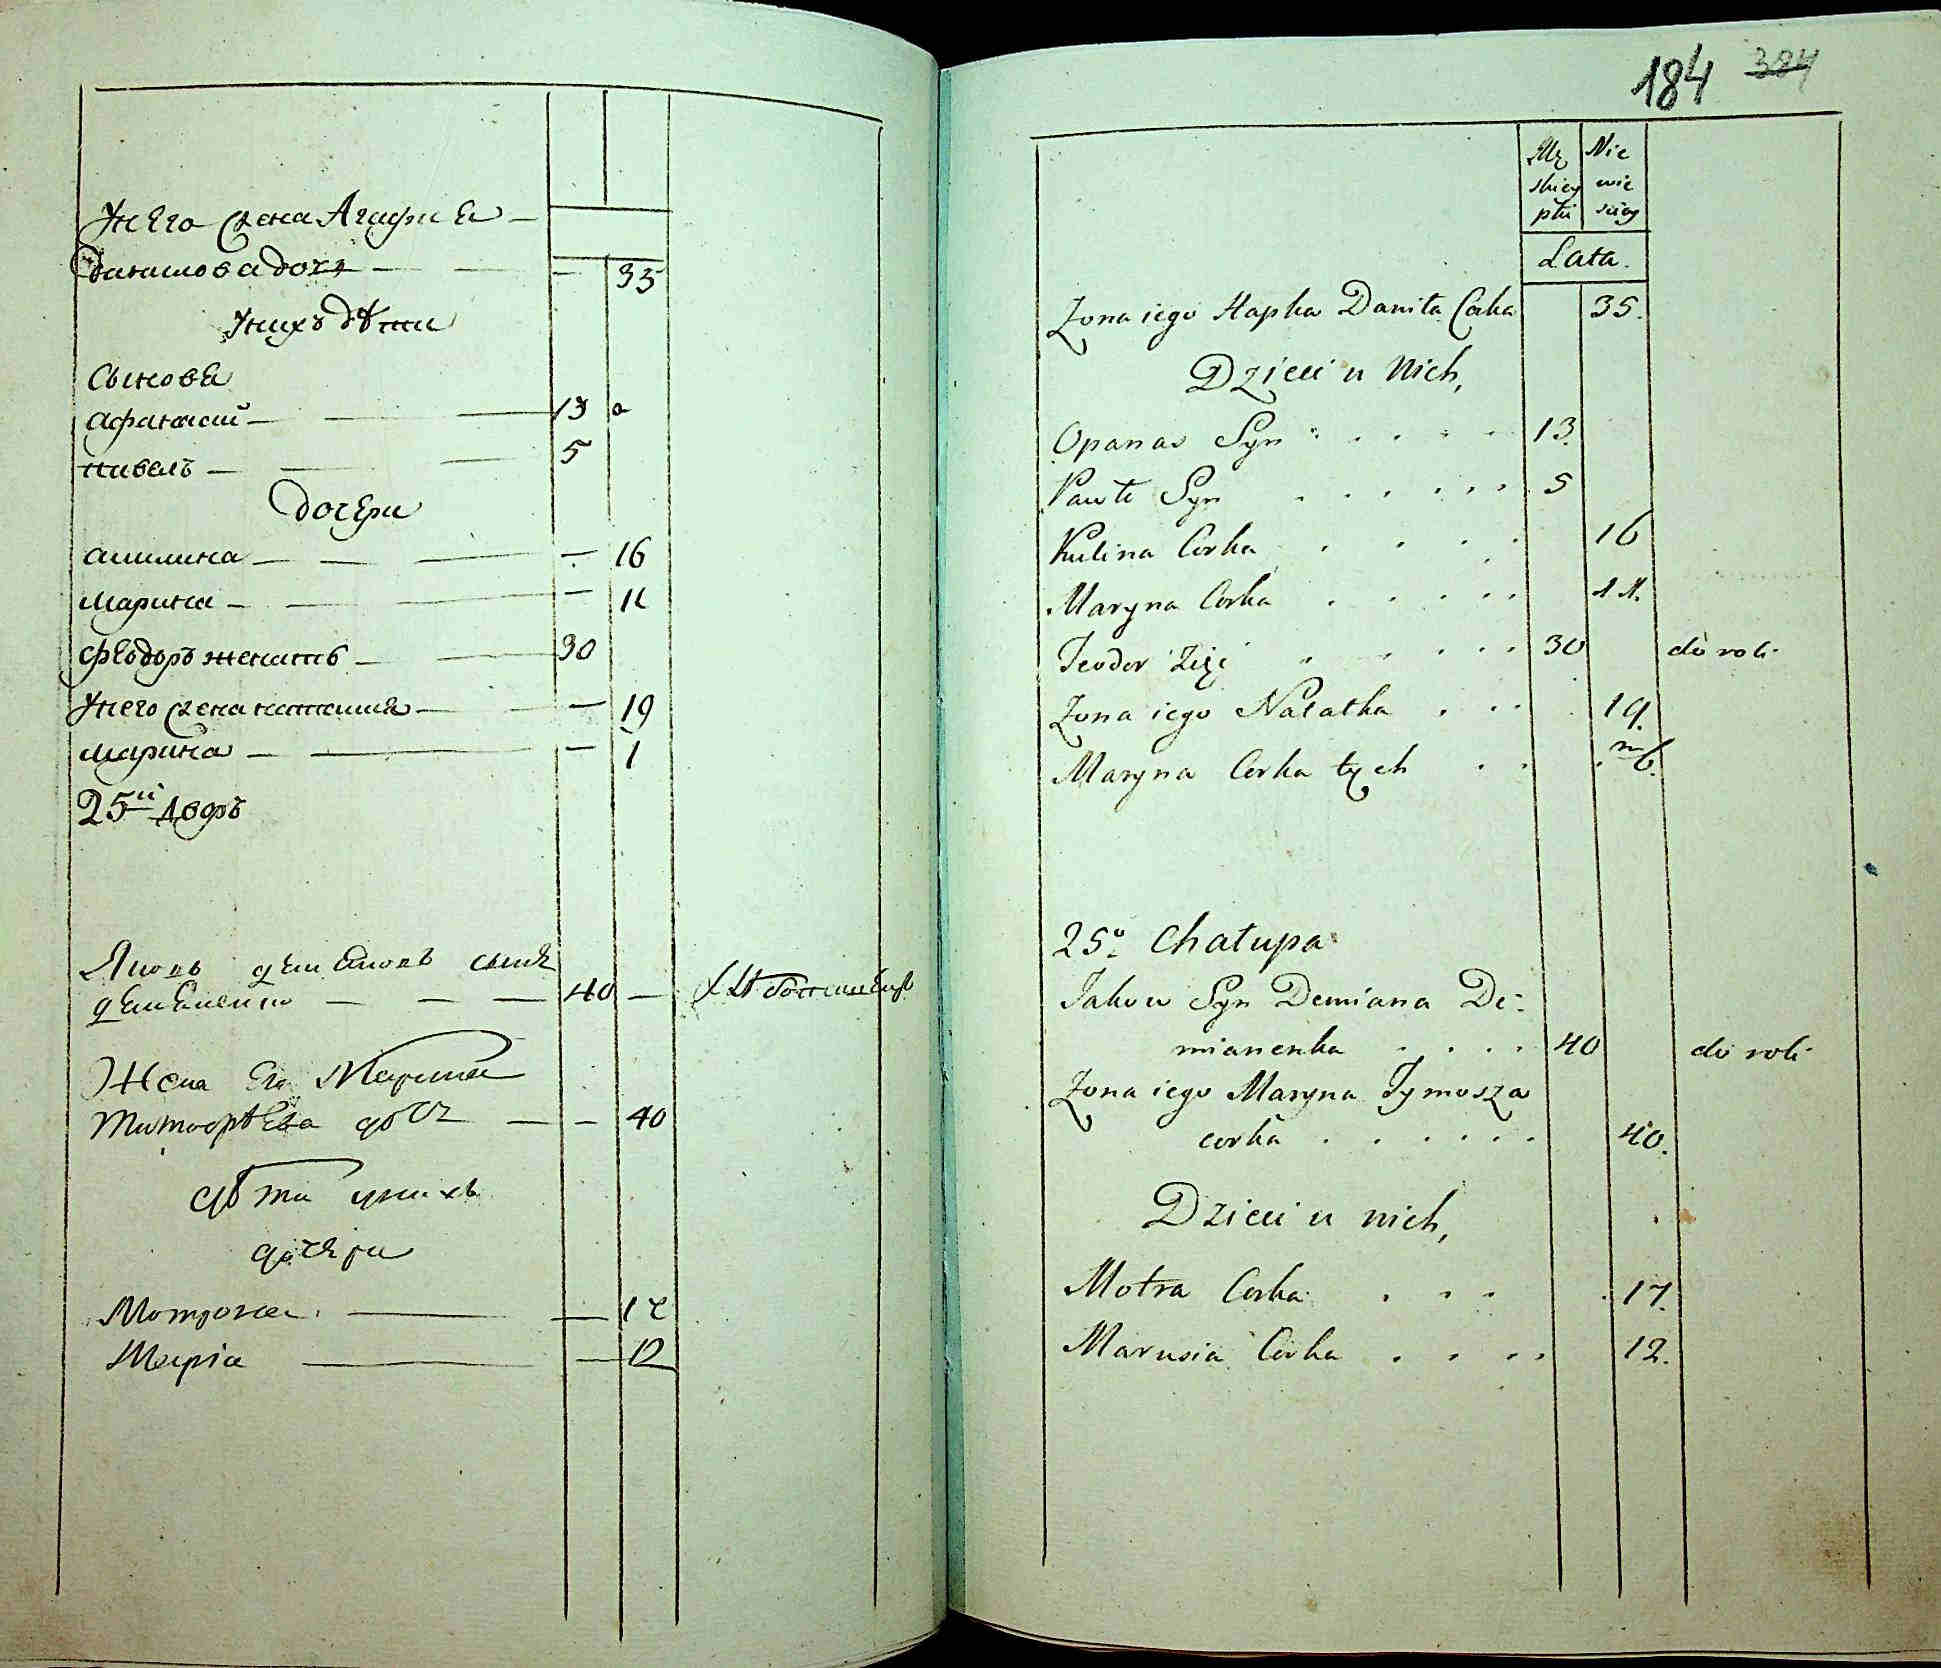 У него жена Агафиа
данилова дочь 35
У нихъ дѣти
Сынове
Афанасий 13
павелъ 5
дочери
акилина 16
марина 11
Феодоръ женатъ 30
У него жена наталиа 19
марина 1
25й дворъ
Яковъ демяновъ сынъ
демяненко 40
Жена его Марина
Тимофѣева дочь 40
Дѣти у нихъ
дочери
Мотрона 17
Марія 12
184 384
Mę Nie
skiey wie
płci sciey
Lata.
Zona iego Hapka Daniła Corka 35.
Dzieci u Nich,
Opanas Syn 13.
Pawło Syn 5
Kulina Corka 16
Maryna Corka 11.
Teodor Zięć 30 do roli
Zona iego Natalka 19.
Maryna Corka tych m 6.
25o. Chałupa
Jakow Syn Demiana De-
mianenka 40 do roli
Zona iego Maryna Tymosza
corka 40.
Dzieci u nich,
Motra Corka 17.
Marusia Corka 12.